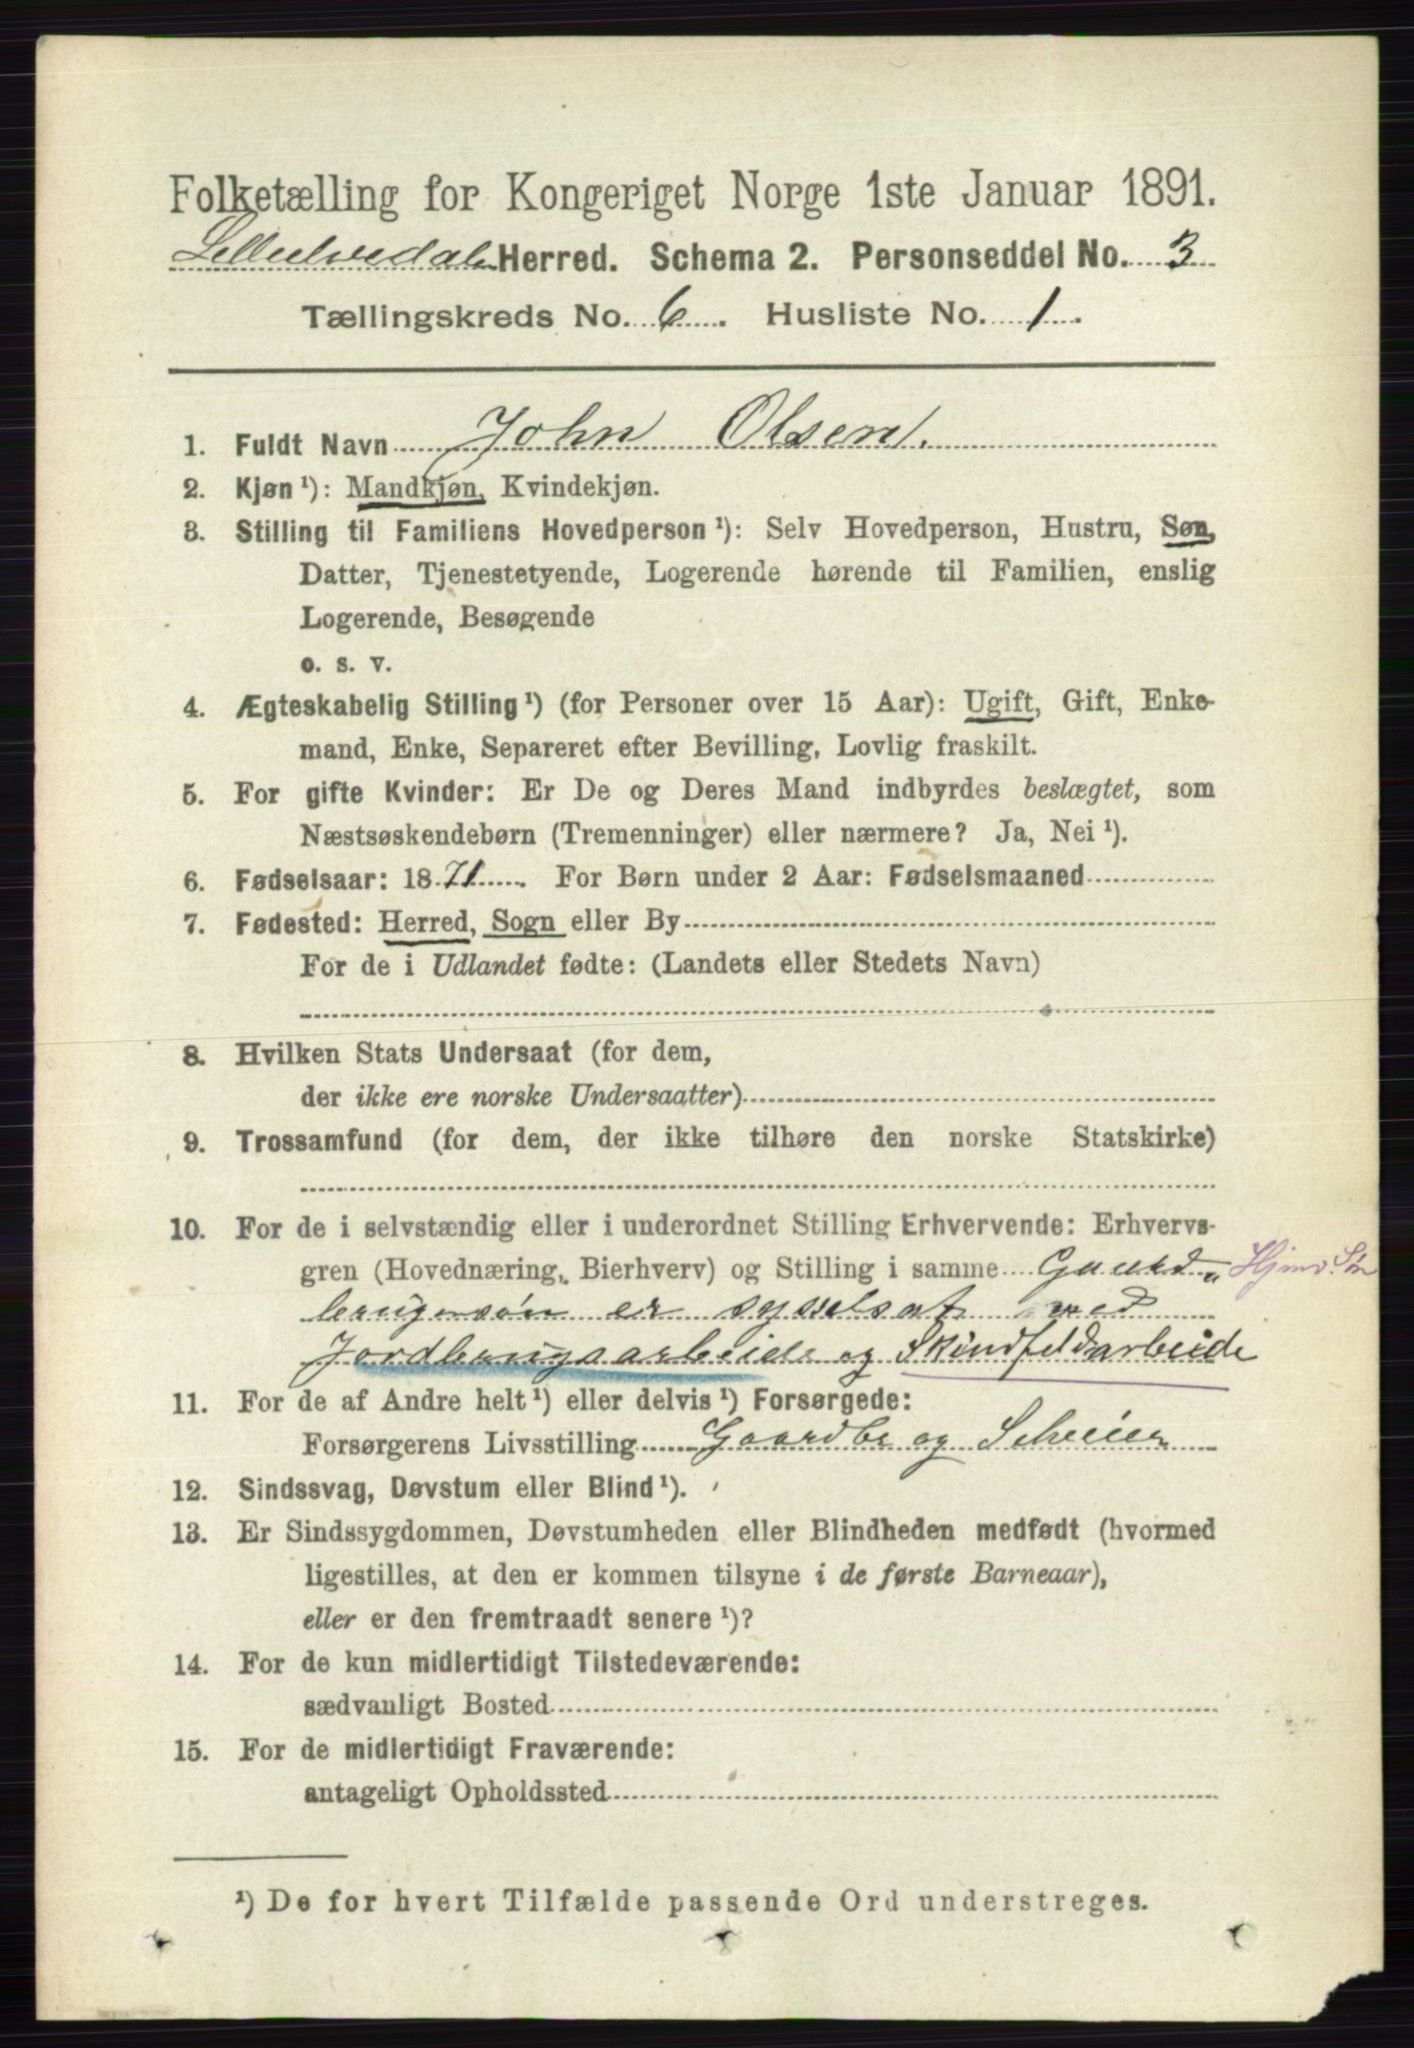 Folketælling for Kongeriget Norge 1ste Januar 1891.
Lilleelvedalen Herred. Schema 2. Personseddel No. 3
Tællingskreds No. 6. Husliste No. 1.
1. Fuldt Navn John Olsen.
2. Kjøn ¹): Mandkjøn, Kvindekjøn.
3. Stilling til Familiens Hovedperson ¹): Selv Hovedperson, Hustru, Søn,
Datter, Tjenestetyende, Logerende hørende til Familien, enslig
Logerende, Besøgende
o. s. v.
4. Ægteskabelig Stilling ¹) (for Personer over 15 Aar): Ugift, Gift, Enke-
mand, Enke, Separeret efter Bevilling, Lovlig fraskilt.
5. For gifte Kvinder: Er De og Deres Mand indbyrdes beslægtet, som
Næstsøskendebørn (Tremenninger) eller nærmere? Ja, Nei ¹).
6. Fødselsaar: 1871. For Børn under 2 Aar: Fødselsmaaned
7. Fødested: Herred, Sogn eller By
For de i Udlandet fødte: (Landets eller Stedets Navn)
8. Hvilken Stats Undersaat (for dem,
der ikke ere norske Undersaatter)
9. Trossamfund (for dem, der ikke tilhøre den norske Statskirke)
10. For de i selvstændig eller i underordnet Stilling Erhvervende: Erhvervs-
gren (Hovednæring, Bierhverv) og Stilling i samme Gaard„ Hjmv. Søn
brugersøn er sysselsat med
Jordbrugsarbeide og Skindfeldarbeide
11. For de af Andre helt ¹) eller delvis ¹) Forsørgede:
Forsørgerens Livsstilling Gaardbr og
12. Sindssvag, Døvstum eller Blind ¹).
13. Er Sindssygdommen, Døvstumheden eller Blindheden medfødt (hvormed
ligestilles, at den er kommen tilsyne i de første Barneaar),
eller er den fremtraadt senere ¹)?
14. For de kun midlertidigt Tilstedeværende:
sædvanligt Bosted
15. For de midlertidigt Fraværende:
antageligt Opholdssted
¹) De for hvert Tilfælde passende Ord understreges.